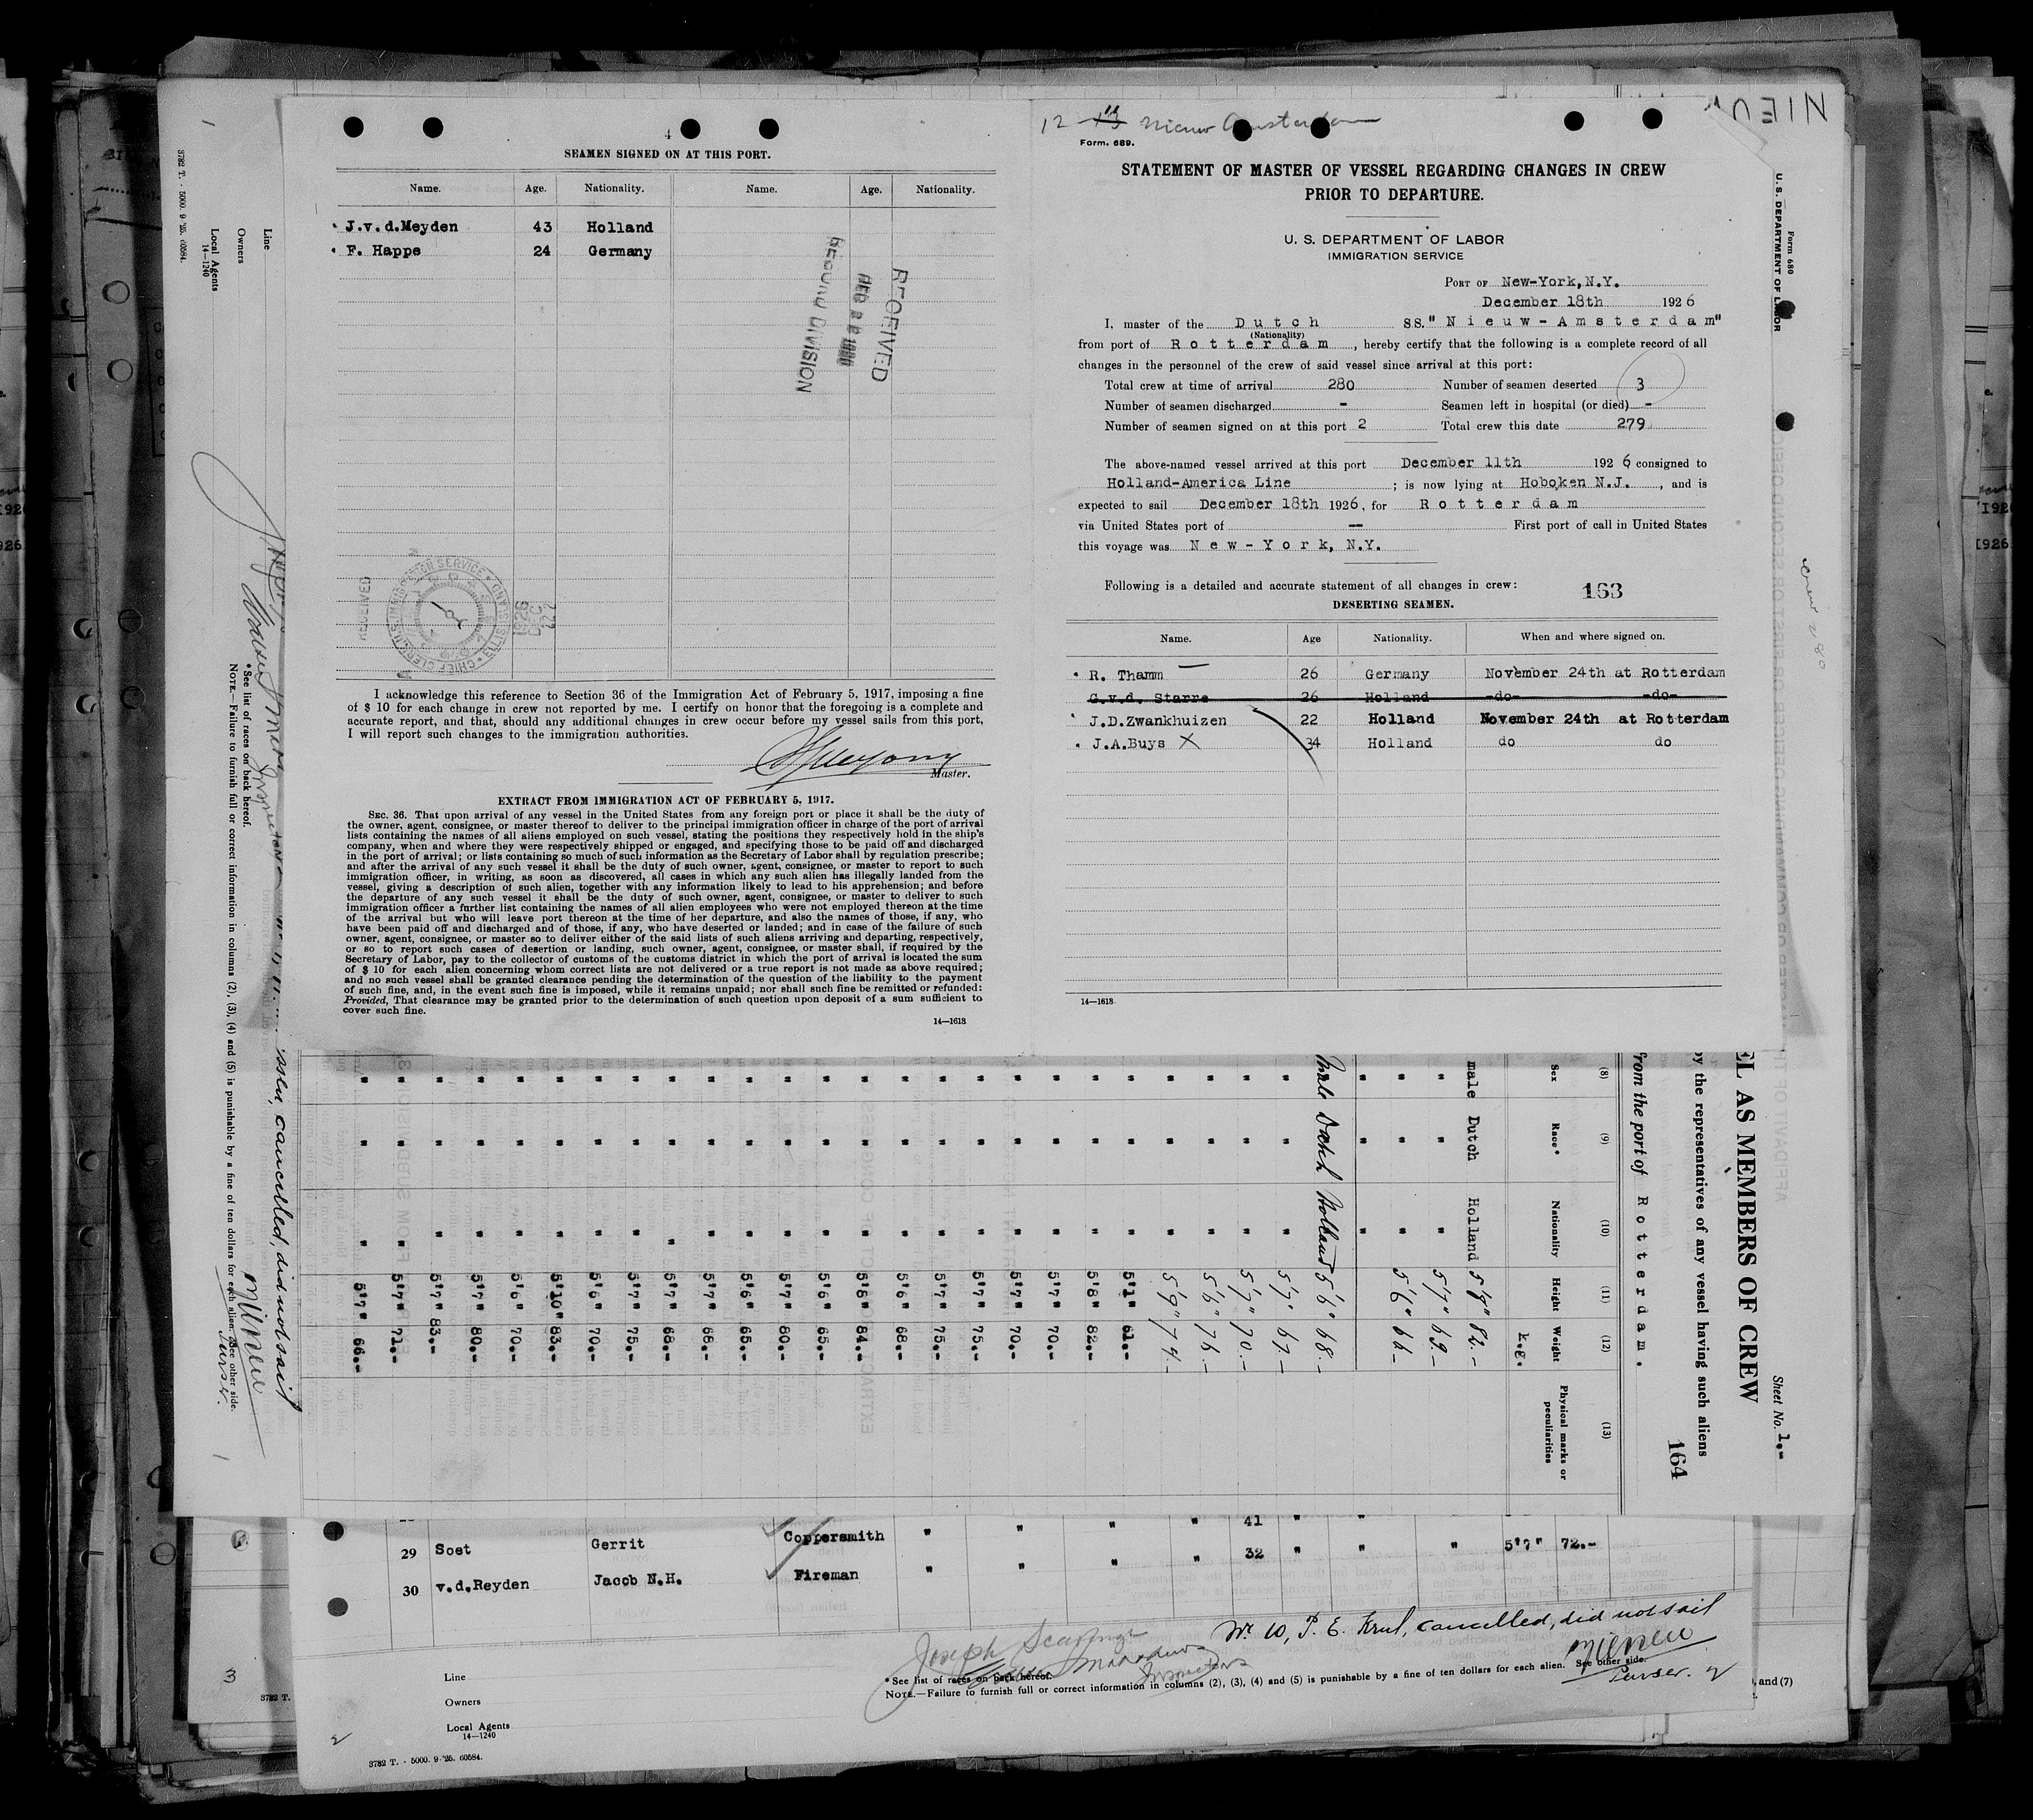 4
SEAMEN SIGNED ON AT THIS PORT.
Name. Age. Nationality. Name. Age. Nationality.
J.v.d.Meyden 43 Holland
F. Happe 24 Germany
RECEIVED
RECORD DIVISION
RECEIVED
CHIEF CLERK
IMMIGRATION SERVICE
ELLIS ISLAND
1926
DEC
22
I acknowledge this reference to Section 36 of the Immigration Act of February 5, 1917, imposing a fine
of $ 10 for each change in crew not reported by me. I certify on honor that the foregoing is a complete and
accurate report, and that, should any additional changes in crew occur before my vessel sails from this port,
I will report such changes to the immigration authorities.
Master.
EXTRACT FROM IMMIGRATION ACT OF FEBRUARY 5, 1917.
SEC. 36. That upon arrival of any vessel in the United States from any foreign port or place it shall be the duty of
the owner, agent, consignee, or master thereof to deliver to the principal immigration officer in charge of the port of arrival
lists containing the names of all aliens employed on such vessel, stating the positions they respectively hold in the ship's
company, when and where they were respectively shipped or engaged, and specifying those to be paid off and discharged
in the port of arrival; or lists containing so much of such information as the Secretary of Labor shall by regulation prescribe;
and after the arrival of any such vessel it shall be the duty of such owner, agent, consignee, or master to report to such
immigration officer, in writing, as soon as discovered, all cases in which any such alien has illegally landed from the
vessel, giving a description of such alien, together with any information likely to lead to his apprehension; and before
the departure of any such vessel it shall be the duty of such owner, agent, consignee, or master to deliver to such
immigration officer a further list containing the names of all alien employees who were not employed thereon at the time
of the arrival but who will leave port thereon at the time of her departure, and also the names of those, if any, who
have been paid off and discharged and of those, if any, who have deserted or landed; and in case of the failure of such
owner, agent, consignee, or master so to deliver either of the said lists of such aliens arriving and departing, respectively,
or so to report such cases of desertion or landing, such owner, agent, consignee, or master shall, if required by the
Secretary of Labor, pay to the collector of customs of the customs district in which the port of arrival is located the sum
of $ 10 for each alien concerning whom correct lists are not delivered or a true report is not made as above required;
and no such vessel shall be granted clearance pending the determination of the question of the liability to the payment
of such fine, and, in the event such fine is imposed, while it remains unpaid; nor shall such fine be remitted or refunded:
Provided, That clearance may be granted prior to the determination of such question upon deposit of a sum sufficient to
cover such fine.
14—1618
12 Nieuw Amsterdam
Form. 689.
STATEMENT OF MASTER OF VESSEL REGARDING CHANGES IN CREW
PRIOR TO DEPARTURE.
U. S. DEPARTMENT OF LABOR
IMMIGRATION SERVICE
PORT OF New-York, N.Y.
December 18th 1926
I, master of the Dutch SS. "Nieuw-Amsterdam"
(Nationality)
from port of Rotterdam, hereby certify that the following is a complete record of all
changes in the personnel of the crew of said vessel since arrival at this port:
Total crew at time of arrival 280 Number of seamen deserted 3
Number of seamen discharged - Seamen left in hospital (or died) -
Number of seamen signed on at this port 2 Total crew this date 279
The above-named vessel arrived at this port December 11th 1926 consigned to
Holland-America Line ; is now lying at Hoboken N.J. , and is
expected to sail December 18th 1926, for Rotterdam
via United States port of -- First port of call in United States
this voyage was New-York, N.Y.
Following is a detailed and accurate statement of all changes in crew: 163
DESERTING SEAMEN.
Name. Age Nationality. When and where signed on.
R. Thamm 26 Germany November 24th at Rotterdam
G.v.d. Starre 26 Holland -do- -do-
J.D.Zwankhuizen 22 Holland November 24th at Rotterdam
J.A.Buys X 34 Holland do do
14—1618
NIEUW
Form 680
U. S. DEPARTMENT OF LABOR
crew 280
Sheet No. 1.-
EL AS MEMBERS OF CREW
by the representatives of any vessel having such aliens
164
from the port of Rotterdam.
(8) (9) (10) (11) (12) (13)
Sex Race* Nationality Height Weight Physical marks or peculiarities
k.g.
male Dutch Holland 5'9" 82.-
" " " 5'7" 69.-
" " " 5'6" 66.-
" " "
Male Dutch Holland 5'6" 68.-
" " " 5'7" 67.-
" " " 5'7" 70.-
" " " 5'6" 76.-
" " " 5'9" 74.-
" " " 5'1" 61.-
" " " 5'8" 82.-
" " " 5'7" 70.-
" " " 5'7" 70.-
" " " 5'7" 75.-
" " " 5'7" 75.-
" " " 5'6" 68.-
" " " 5'8" 84.-
" " " 5'6" 65.-
" " " 5'7" 80.-
" " " 5'6" 65.-
" " " 5'7" 68.-
" " " 5'7" 68.-
" " " 5'7" 75.-
" " " 5'6" 70.-
" " " 5'10" 83.-
" " " 5'6" 70.-
" " " 5'7" 80.-
" " " 5'7" 83.-
" " " 5'7" 71.-
" " " 5'7" 66.-
cancelled, did not sail
Purser.
Line
Owners
Local Agents
14—1240
*See list of races on back hereof.
NOTE.—Failure to furnish full or correct information in columns (2), (3), (4) and (5) is punishable by a fine of ten dollars for each alien. See other side.
3782 T. - 5000. 9-'25. 60584.
41
29 Soet Gerrit Coppersmith " " " " 32 " " " 5'7" 72.-
30 v.d.Reyden Jacob N.H. Fireman " " " "
Nr. 10, P. E. Krul, cancelled, did not sail
Joseph
Inspectors
Purser.
Line
Owners
Local Agents
14—1240
*See list of races on back hereof.
NOTE.—Failure to furnish full or correct information in columns (2), (3), (4) and (5) is punishable by a fine of ten dollars for each alien. See other side.
, and (7)
3
3782 T.
3782 T. - 5000. 9-'25. 60584.